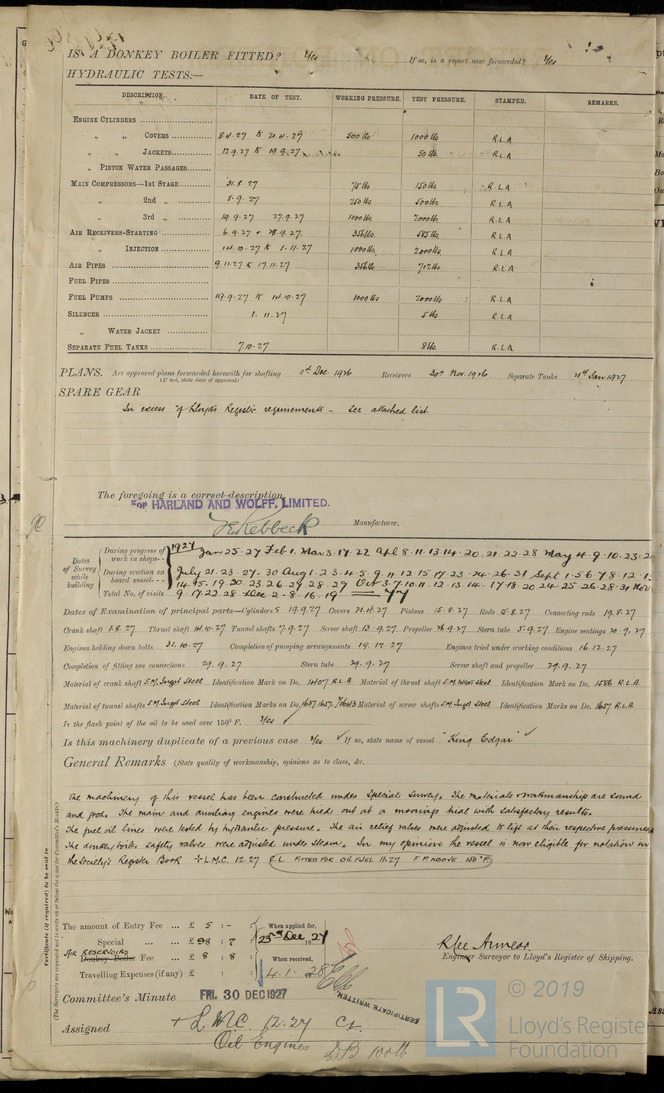 IS A DONKEY BOILER FITTED? Yes If so, is a report now forwarded? Yes
HYDRAULIC TESTS:—
DESCRIPTION. DATE OF TEST. WORKING PRESSURE. TEST PRESSURE. STAMPED. REMARKS.
ENGINE CYLINDERS
„ „ COVERS 8.4.27 to 21.4.27 500 lbs 1000 lbs R.L.A
„ „ JACKETS 12.9.27 to 19.9.27 50 lbs R.L.A
„ PISTON WATER PASSAGES
MAIN COMPRESSORS—1st STAGE 31.8.27 75 lbs 150 lbs R.L.A
„ 2nd „ 8.9.27 250 lbs 500 lbs R.L.A
„ 3rd „ 19.9.27 27.9.27 1000 lbs 2000 lbs R.L.A
AIR RECEIVERS-STARTING 6.9.27 + 28.9.27 356 lbs. 585 lbs R.L.A
„ INJECTION 14.10.27 to 1.11.27 1000 lbs. 2000 lbs. R.L.A
AIR PIPES 9.11.27 to 17.11.27 356 lb 712 lbs R.L.A
FUEL PIPES
FUEL PUMPS 19.9.27 to 14.10.27 1000 lbs 2000 lbs R.L.A
SILENCER 1.11.27 5 lb R.L.A
„ WATER JACKET
SEPARATE FUEL TANKS 7.10.27 8 lbs. R.L.A.
PLANS. Are approved plans forwarded herewith for shafting Dec. 1926 Receivers 30th Nov. 1926 Separate Tanks Jan 1927
(If not, state date of approval)
SPARE GEAR
In excess of Lloyd's Register requirements - see attached list.
The foregoing is a correct description,
FOR HARLAND AND WOLFF, LIMITED.
Rebbeck Manufacturer.
Dates of Survey while building
During progress of work in shops-- 1927 Jan 25.27 Feb 1. Mar 3.17.22 Apl 8.11.13 14.20.21.22.28 May 4.9.10.23.2
During erection on board vessel--- July 21.23.27.30 Aug 1.2.3.4.5.9.11 12 15.17.23.24.26.31 Sept 1.5.6 7 8.12.1
14.15.19.20.23.26.27.28.29 Oct 3.7.10.11.12.13.14.17.18 20 24.25.26.28.31 Nov
Total No. of visits 9.17.22.28 Dec 2.8.16.19 = 77
Dates of Examination of principal parts—Cylinders 19.9.27 Covers 21.4.27 Pistons 15.8.27 Rods 15.8.27 Connecting rods 19.8.27
Crank shaft 1.8.27 Thrust shaft 14.10.27 Tunnel shafts 7.9.27 Screw shaft 13.9.27 Propeller 26.9.27 Stern tube 5.9.27 Engine seatings 20.9.27
Engines holding down bolts 31.10.27 Completion of pumping arrangements 19.12.27 Engines tried under working conditions 16.12.27
Completion of fitting sea connections 29.9.27 Stern tube 29.9.27 Screw shaft and propeller 29.9.27
Material of crank shaft S.M. Ingot Steel Identification Mark on Do. 10407 R.L.A Material of thrust shaft S.M. Ingot Steel Identification Mark on Do. 1586 R.L.A.
Material of tunnel shafts S.M. Ingot Steel Identification Marks on Do. 1657. Material of screw shafts S.M. Ingot Steel Identification Marks on Do. 1657 R.L.A
Is the flash point of the oil to be used over 150° F. Yes
Is this machinery duplicate of a previous case Yes If so, state name of vessel "King Edgar"
General Remarks (State quality of workmanship, opinions as to class, &c.
The machinery of this vessel has been constructed under Special Survey. The materials & workmanship are sound
and good. The main and auxiliary engines were tried out at a moorings trial with satisfactory results.
The fuel oil lines were tested by hydraulic pressure. The air relief valves were adjusted to lift at their respective pressures
The donkey boiler safety valves were adjusted under steam. In my opinion the vessel is now eligible for notation in
the Society's Register Book + L.M.C. 12.27 C.L. FITTED FOR OIL FUEL 11.27 F.P. ABOVE 150°F.
Certificate (if required) to be sent to
(The Surveyors are requested not to write on or below the space for Committee's Minute.)
The amount of Entry Fee ... £ 5 : - : When applied for,
Special ... ... £ 98 : 7 : 23rd Dec 1927
AIR RESERVOIRS Donkey Boiler Fee ... £ 8 : 8 : When received,
Travelling Expenses (if any) £ : : 4.1.28
Engineer Surveyor to Lloyd's Register of Shipping.
Committee's Minute FRI. 30 DEC 1927
CERTIFICATE WRITTEN
Assigned + L.M.C. 12.27 C.L.
Oil Engines D.B. 100 lb
LR
© 2019
Lloyd's Registe
Foundation